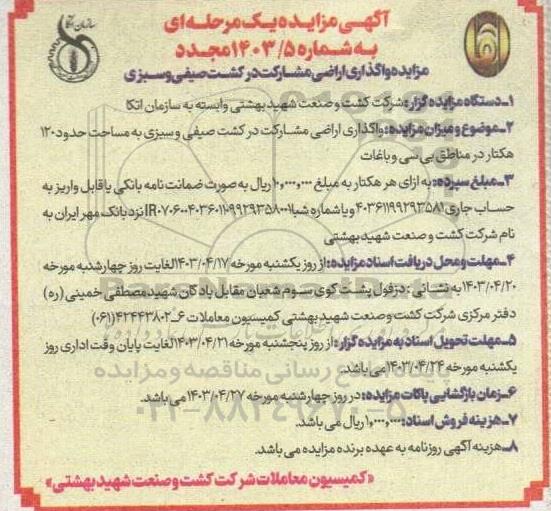 آگهی مزایده یک مرحله‌ای
به شماره ۱۴۰۳/۵ مجدد
سازمان اتکا
مزایده واگذاری اراضی مشارکت در کشت صیفی و سبزی
۱ـ دستگاه مزایده گزار: شرکت کشت و صنعت شهید بهشتی وابسته به سازمان اتکا
۲ـ موضوع و میزان مزایده: واگذاری اراضی مشارکت در کشت صیفی و سبزی به مساحت حدود ۱۲۰
هکتار در مناطق بی سی و باغات
۳ـ مبلغ سپرده: به ازای هر هکتار به مبلغ ۱۰,۰۰۰,۰۰۰ ریال به صورت ضمانت نامه بانکی یا قابل واریز به
حساب جاری ۴۰۳۶۱۱۹۹۲۹۳۵۸۱ و یا شماره شبا نزد بانک مهر ایران به
نام شرکت کشت و صنعت شهید بهشتی
۴ـ مهلت و محل دریافت اسناد مزایده: از روز یکشنبه مورخه ۱۴۰۳/۰۴/۱۷ لغایت روز چهارشنبه مورخه
۱۴۰۳/۰۴/۲۰ به نشانی: دزفول پشت کوی سوم شعبان مقابل پادگان شهید مصطفی خمینی (ره)
دفتر مرکزی شرکت کشت و صنعت شهید بهشتی کمیسیون معاملات ۶ـ۴۲۴۴۳۸۰۲ (۰۶۱)
۵ـ مهلت تحویل اسناد به مزایده گزار: از روز پنجشنبه مورخه ۱۴۰۳/۰۴/۲۱ لغایت پایان وقت اداری روز
یکشنبه مورخه ۱۴۰۳/۰۴/۲۴ می باشد.
۶ـ زمان بازگشایی پاکات مزایده: در روز چهارشنبه مورخه ۱۴۰۳/۰۴/۲۷ می باشد.
۷ـ هزینه فروش اسناد: ۱,۰۰۰,۰۰۰ ریال می باشد.
۸ـ هزینه آگهی روزنامه به عهده برنده مزایده می باشد.
«کمیسیون معاملات شرکت کشت و صنعت شهید بهشتی»
پایگاه اطلاع رسانی مناقصه و مزایده
۰۲۱-۸۸۳۴۹۶۷۰-۵